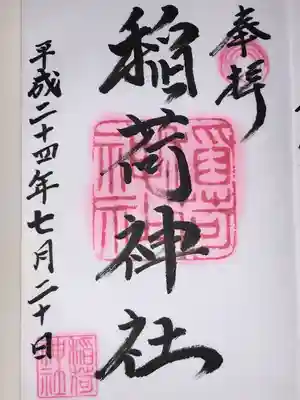 奉拝
稲荷神社
平成二十四年七月二十日
稲荷
神社
稲荷
神社